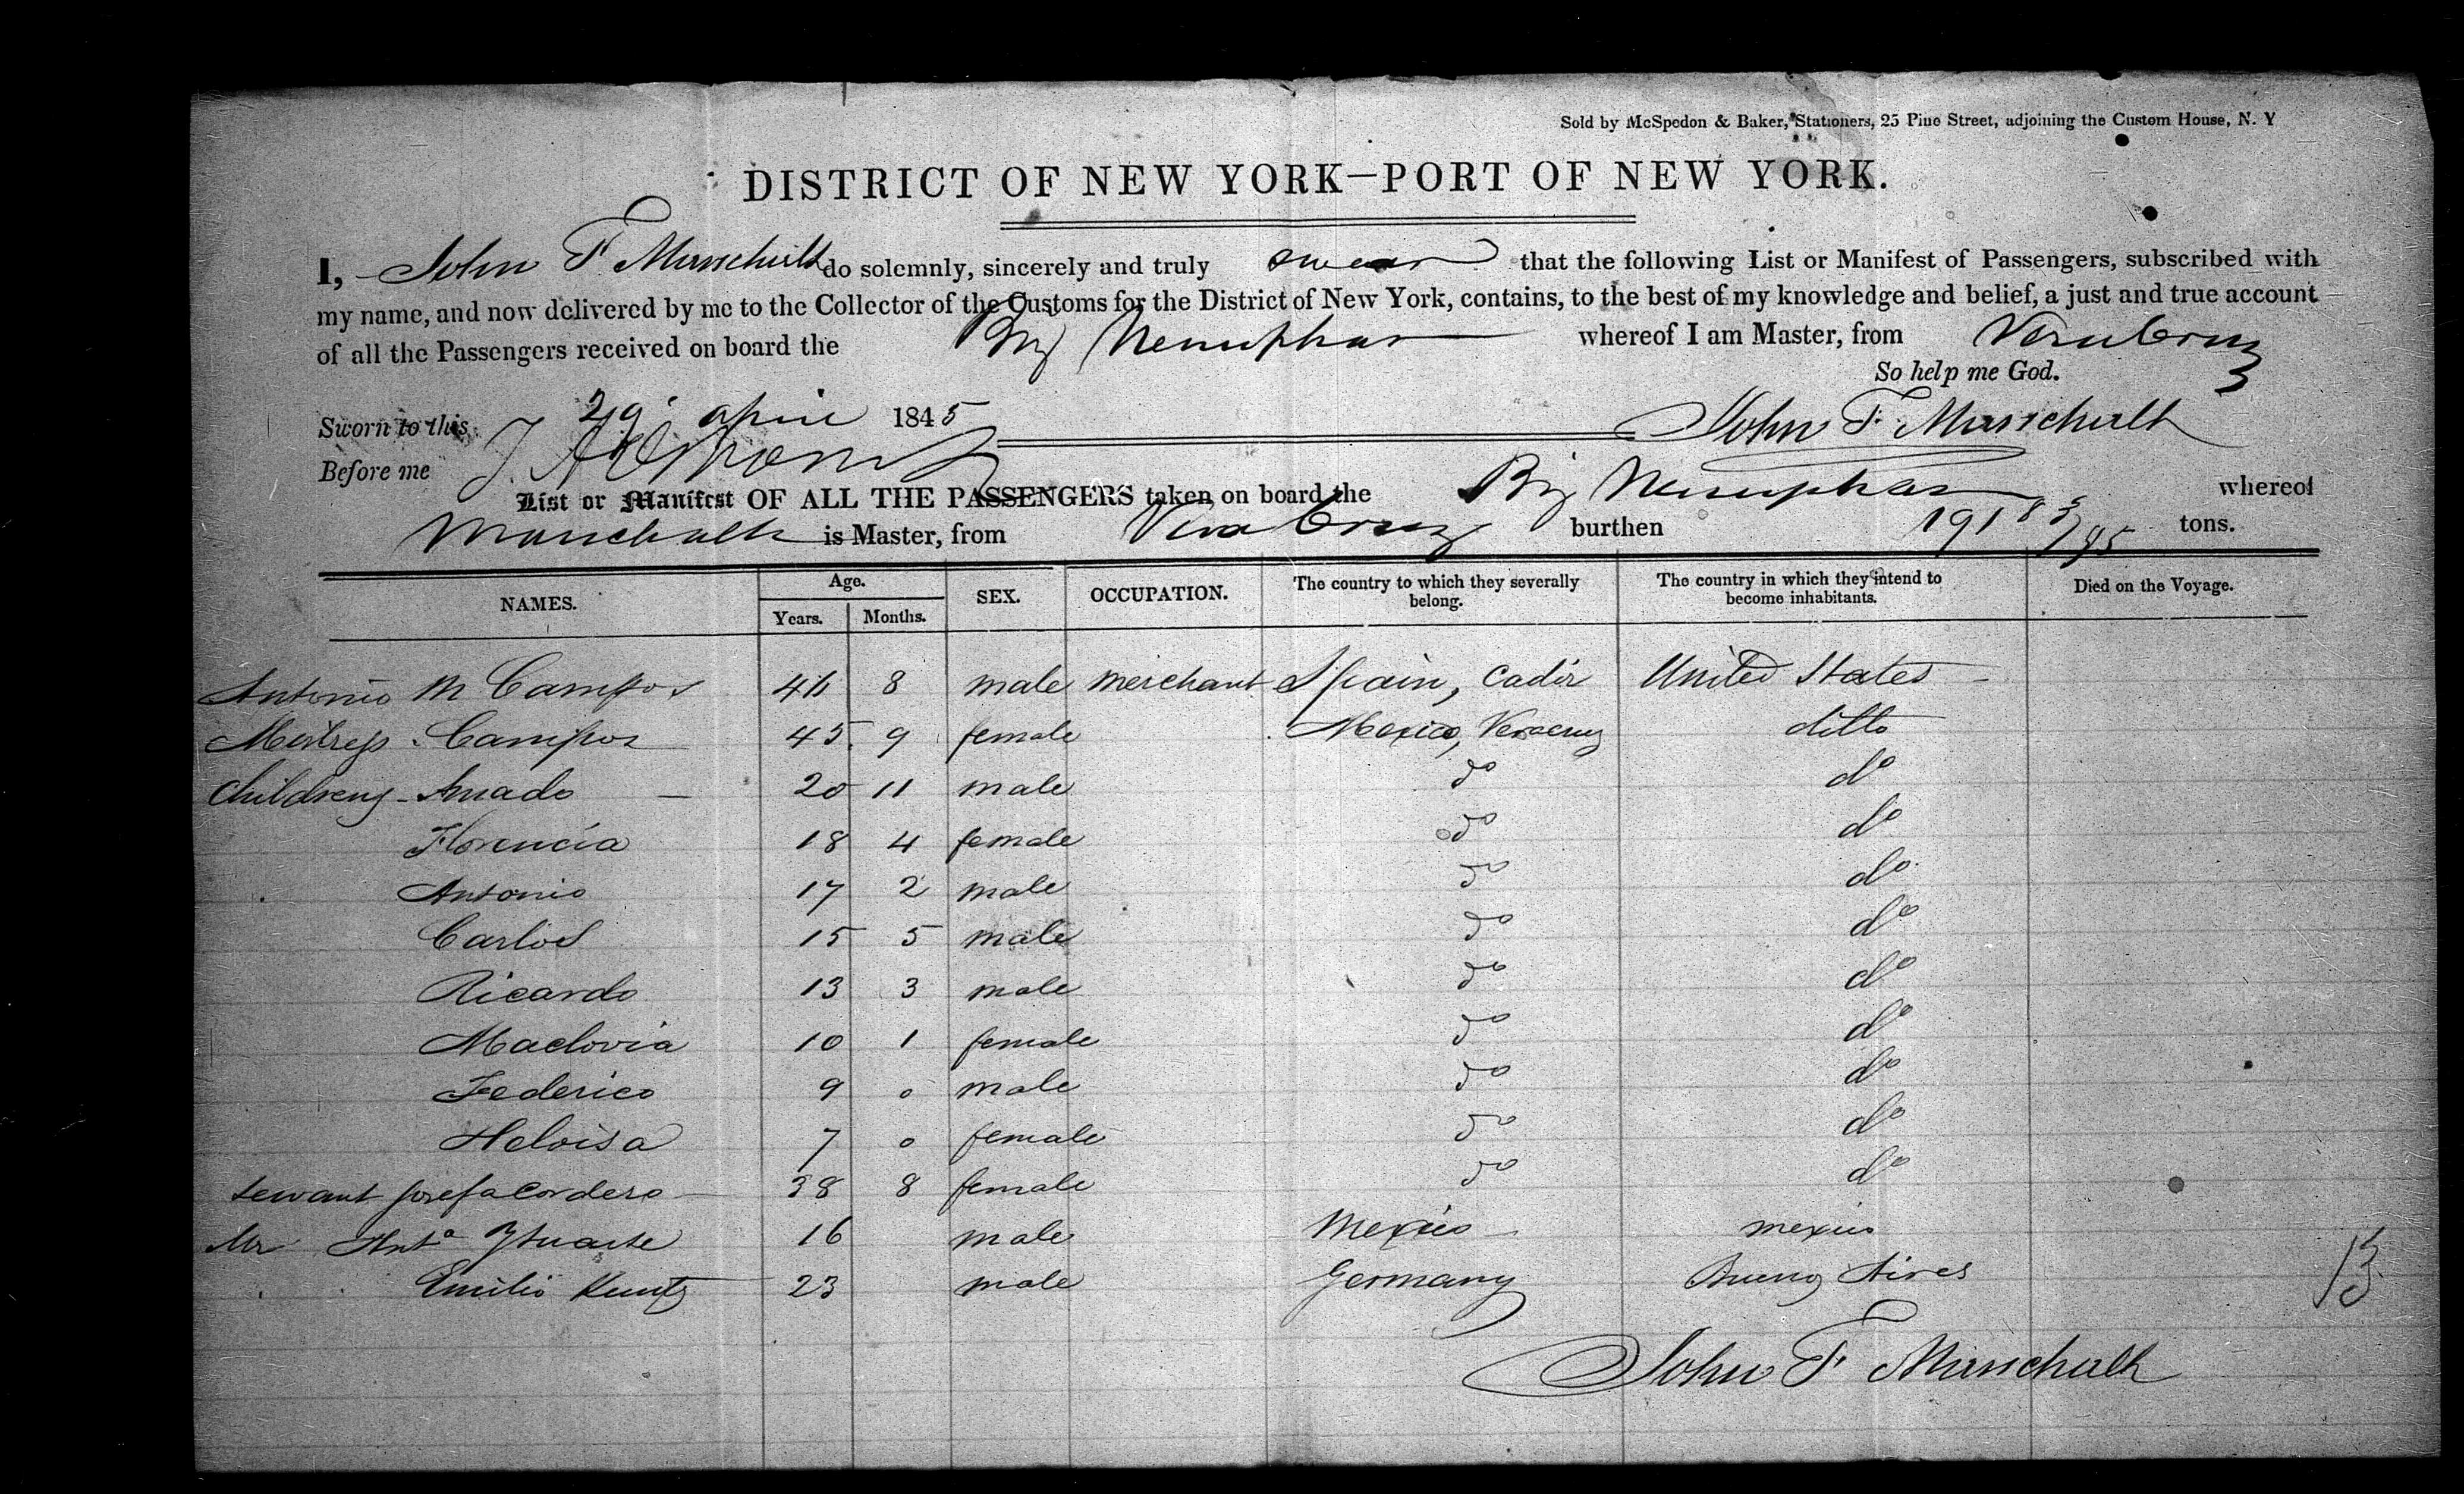 Sold by McSpedon & Baker, Stationers, 25 Pine Street, adjoining the Custom House, N. Y
DISTRICT OF NEW YORK—PORT OF NEW YORK.
I, John F. Marschalk do solemnly, sincerely and truly swear that the following List or Manifest of Passengers, subscribed with
my name, and now delivered by me to the Collector of the Customs for the District of New York, contains, to the best of my knowledge and belief, a just and true account
of all the Passengers received on board the Brig Nenuphar whereof I am Master, from Vera Cruz
So help me God.
Sworn to this 29 April 1845 John F. Marschalk
Before me
List or Manifest OF ALL THE PASSENGERS taken on board the Brig Nenuphar whereof
Marschalk is Master, from Vera Cruz burthen 191 83/95 tons.
NAMES. Age. Years. Months. SEX. OCCUPATION. The country to which they severally belong. The country in which they intend to become inhabitants. Died on the Voyage.
Antonio M Campos 8 male merchant Spain, Cadiz United States
Mistress Campos 45 9 female Mexico, Veracruz ditto
Children Amado 20 11 male do do
Florencia 18 4 female do do
Antonio 17 2 male do do
Carlos 15 5 male do do
Ricardo 13 3 male do do
Maclovia 10 1 female do do
Federico 9 0 male do do
Heloisa 7 0 female do do
servant Josefa Cordero 38 8 female do do
Mr Anto Yturite 16 male Mexico mexico
Emilio Kuntz 23 male Germany Buenos Aires
13
John F. Marschalk